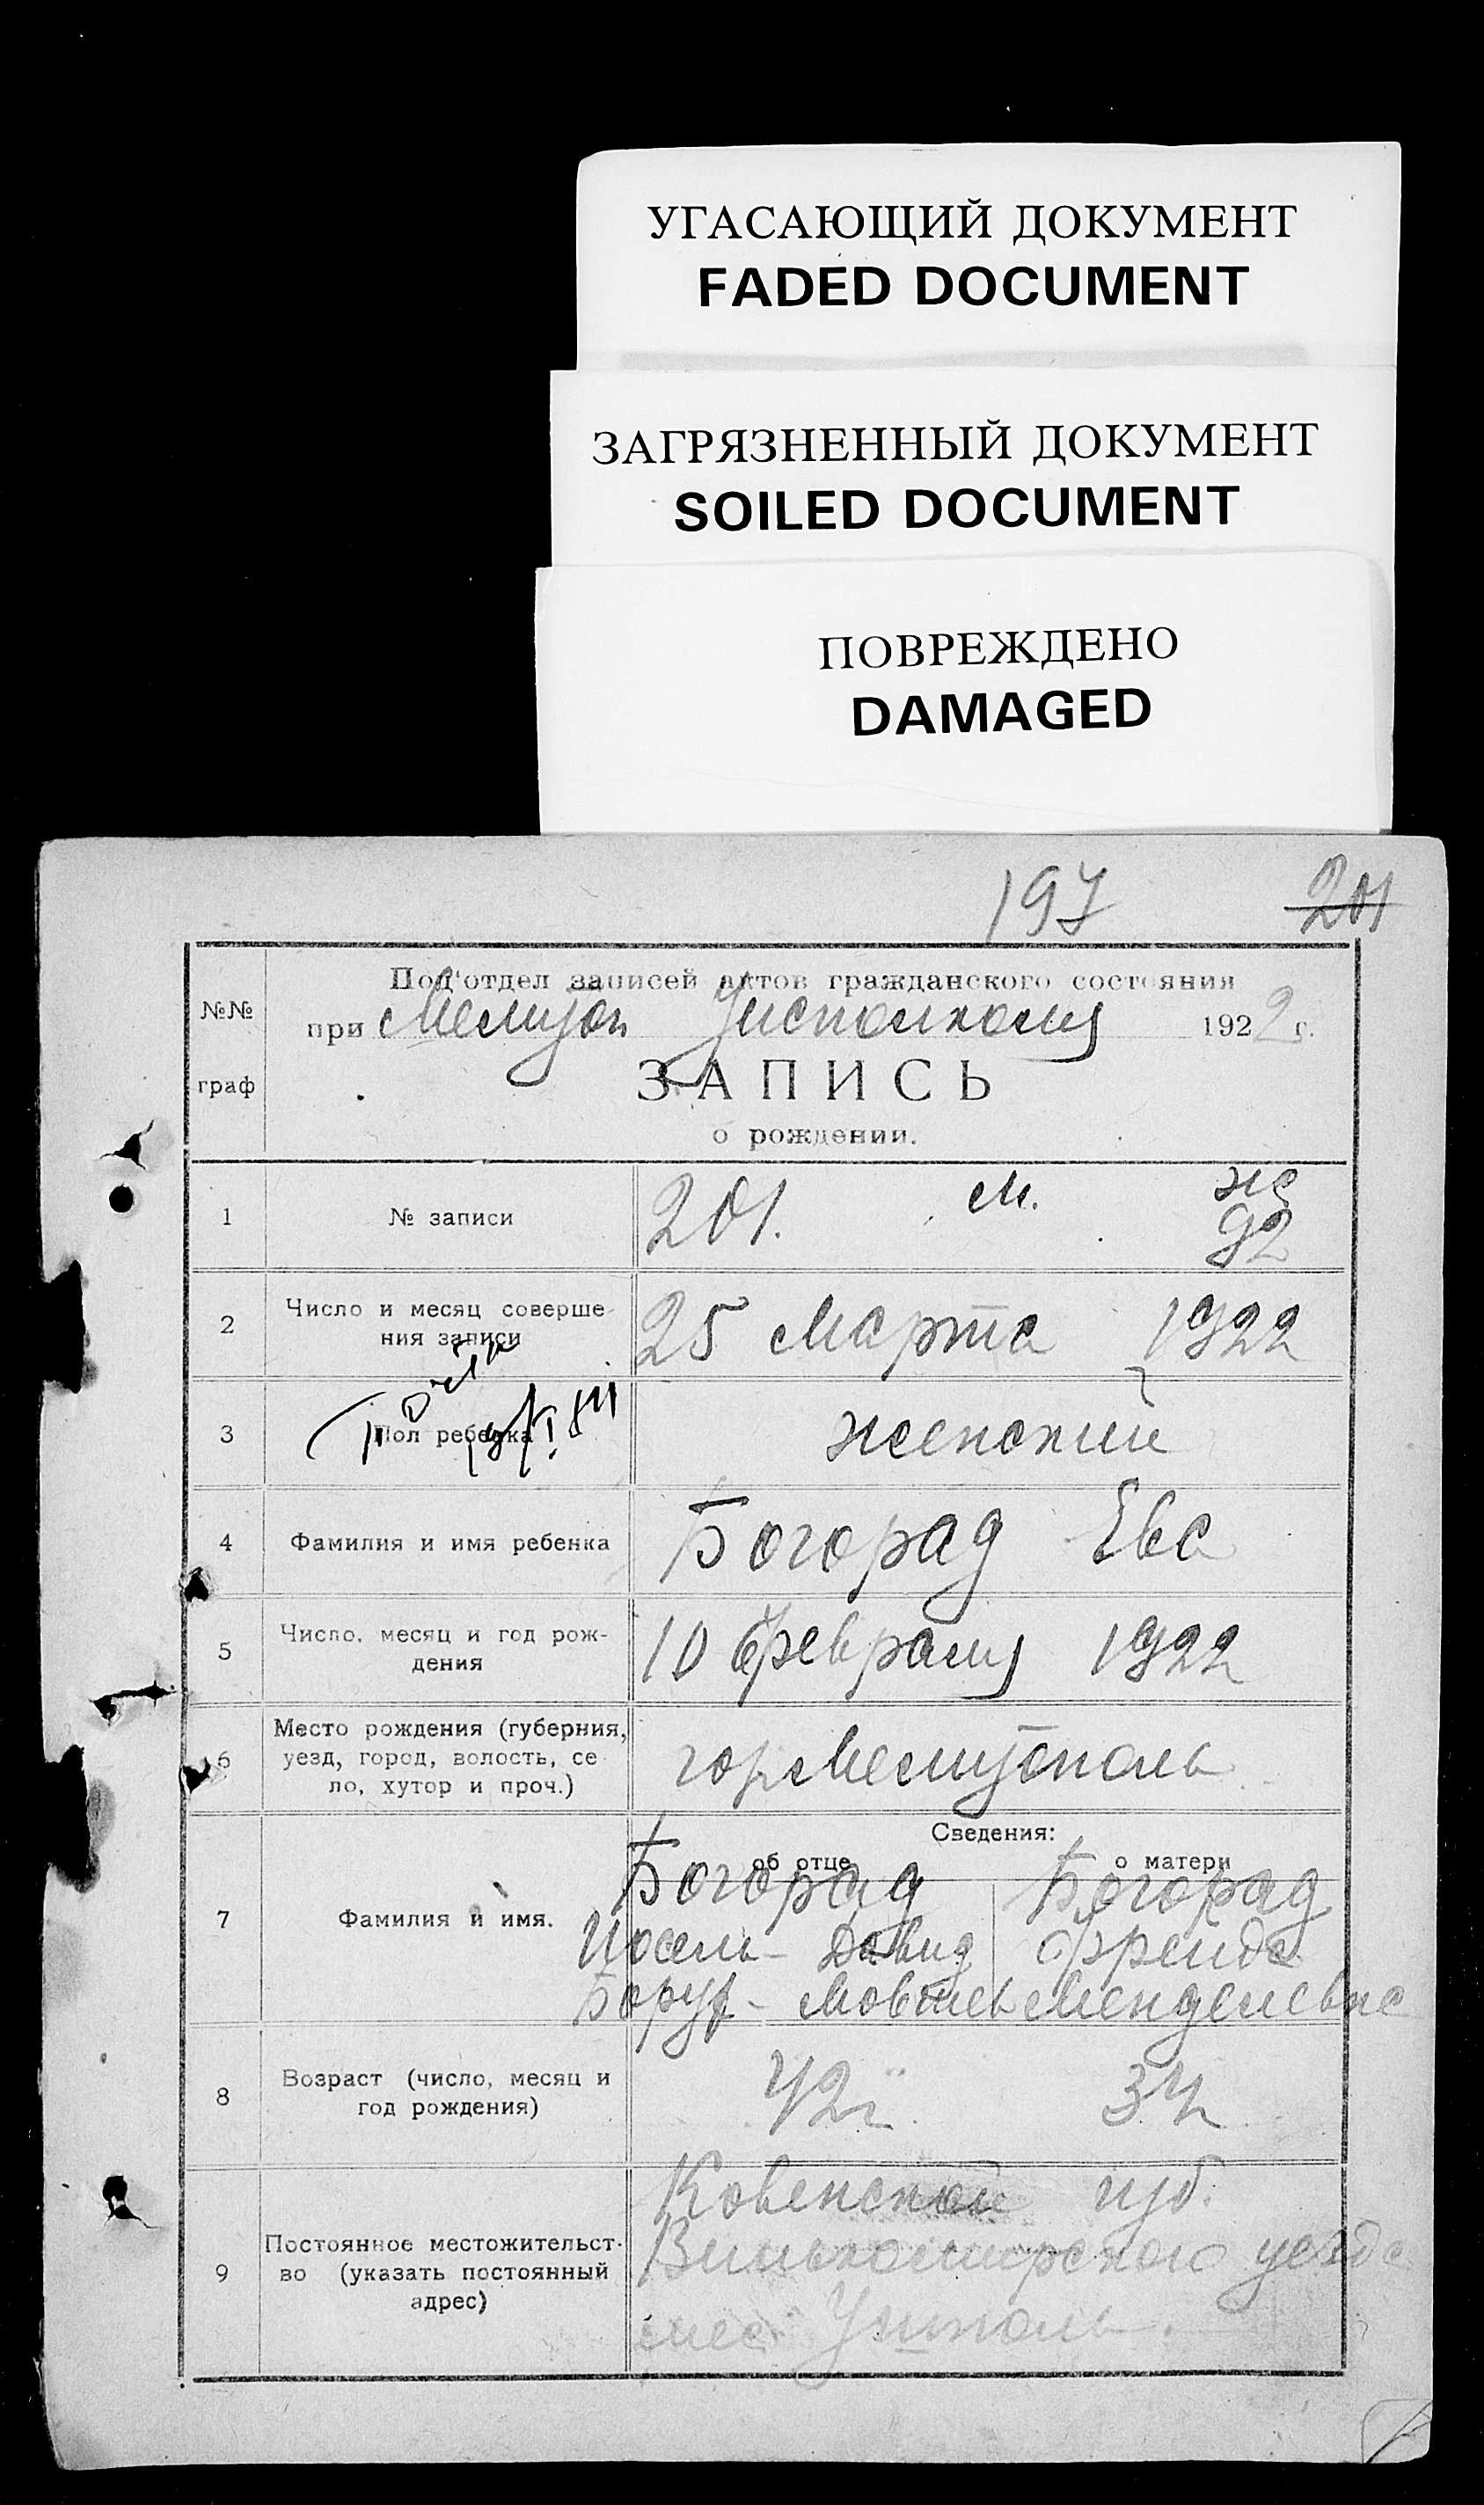 УГАСАЮЩИЙ ДОКУМЕНТ
FADED DOCUMENT
ЗАГРЯЗНЕННЫЙ ДОКУМЕНТ
SOILED DOCUMENT
ПОВРЕЖДЕНО
DAMAGED
197 201
№№ граф
Под'отдел записей актов гражданского состояния
при Мелитоп Уисполкома 1922 г.
ЗАПИСЬ
о рождении.
1 № записи 201. м. ж
92
2 Число и месяц соверше-
ния записи 25 Марта 1922
3 Пол ребенка женский
4 Фамилия и имя ребенка Богорад Ева
5 Число, месяц и год рож-
дения 10 февраля 1922
6 Место рождения (губерния,
уезд, город, волость, се-
ло, хутор и проч.) гор Мелитополь
Сведения:
об отце о матери
7 Фамилия и имя. Богорад Богорад
Иосель-Давид Фрейда
Борух-Мовшев Менделевна
8 Возраст (число, месяц и
год рождения) 42 г. 34
9 Постоянное местожительст-
во (указать постоянный
адрес) Ковенской губ.
Вилькомирского уезда
мес.